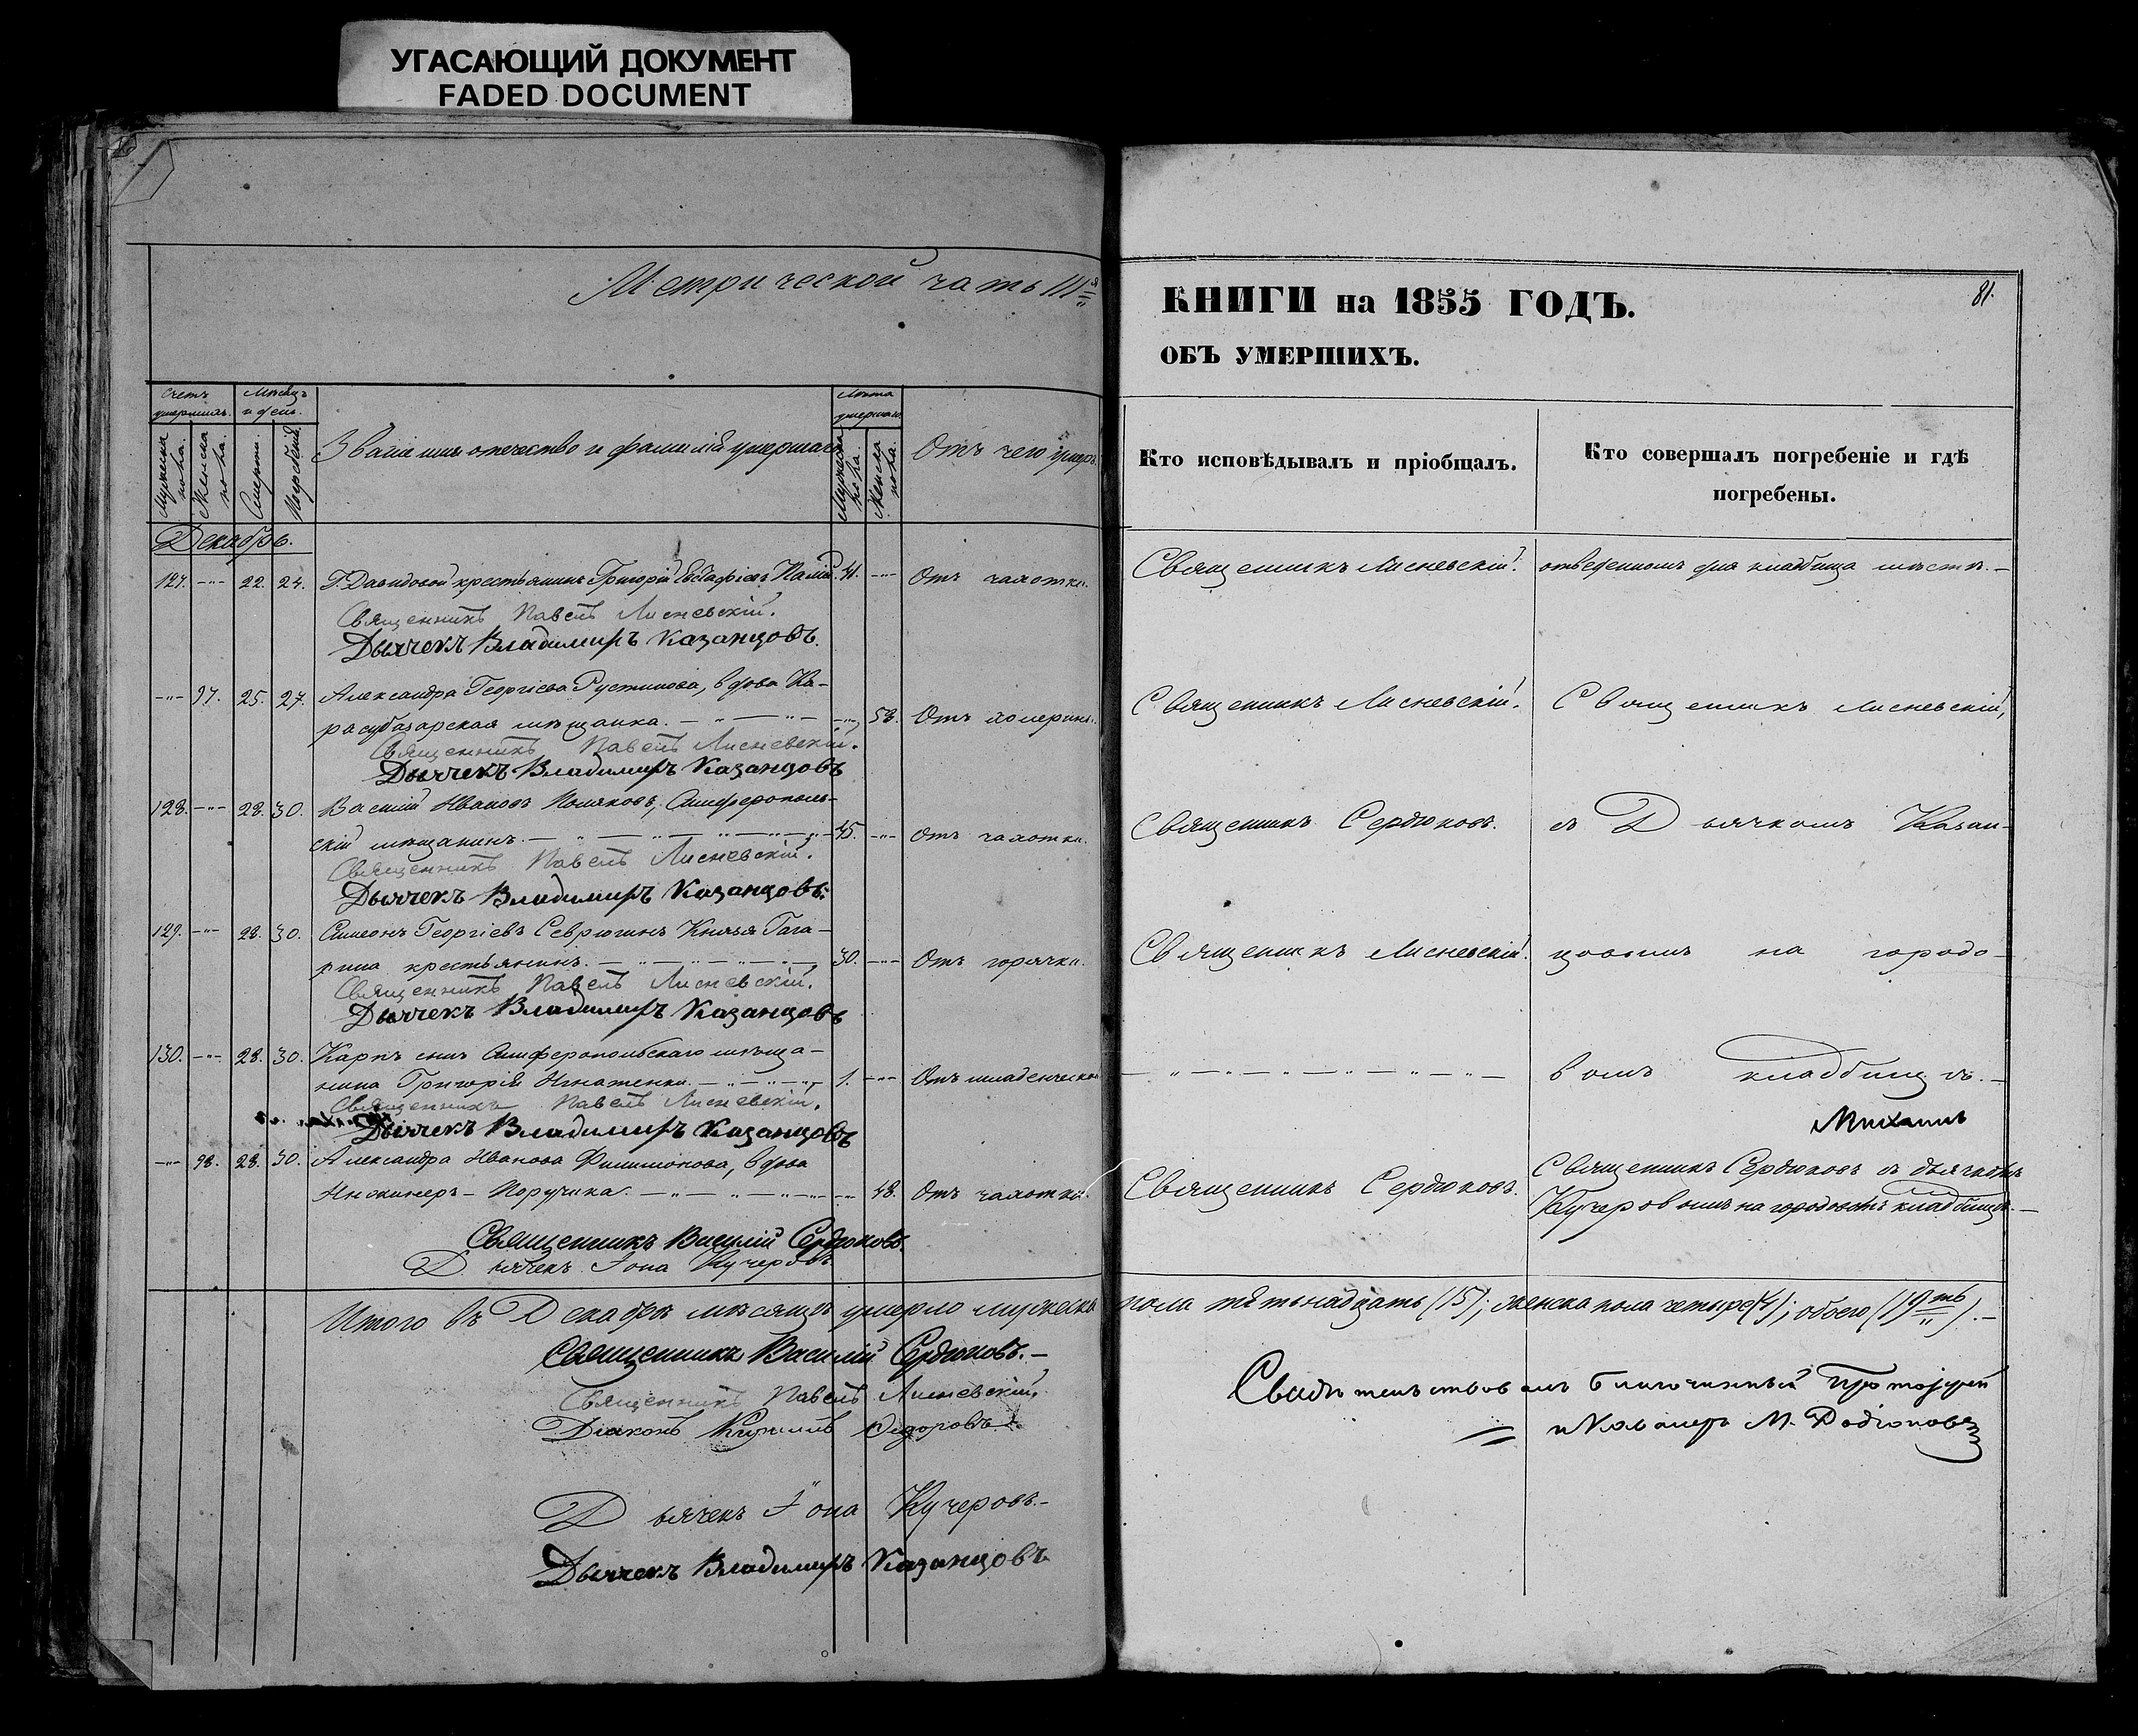 УГАСАЮЩИЙ ДОКУМЕНТ
FADED DOCUMENT
Метрической часть III я
КНИГИ на 1855 ГОДЪ.
81.
ОБЪ УМЕРШИХЪ.
Счетъ умершихъ.
Мѣсяцъ и день.
Званіе имя отечество и фамилія умершаго
Лѣта умершаго
Отъ чего умеръ.
Мужеска пола.
Женска пола.
Смерти.
Погребенія.
Мужеска пола.
Женска пола.
Кто исповѣдывалъ и пріобщалъ.
Кто совершалъ погребеніе и гдѣ погребены.
Декабрь.
127. -"- 22. 24. Г. Давидовой крестьянинъ Григорій Евстафіевъ 41. -"- Отъ чахотки. Священникъ Лисневскій. отведенномъ для кладбища мѣстѣ.-
Священникъ Павелъ Лисневскій.
Дьячекъ Владимиръ Казанцовъ.
-"- 97. 25. 27. Александра Георгіева Рустинова, вдова Ка-
расубазарская мѣщанка. -"- 58. Отъ холеры. Священникъ Лисневскій. Священникъ Лисневскій,
Священникъ Павелъ Лисневскій.
Дьячекъ Владимиръ Казанцовъ
128. -"- 28. 30. Василій Ивановъ Поляковъ, Симферополь-
скій мѣщанинъ. 45. -"- Отъ чахотки. Священникъ Сердюковъ. съ Дьячкомъ Казан-
Священникъ Павелъ Лисневскій.
Дьячекъ Владимиръ Казанцовъ.
129. -"- 28. 30. Симеонъ Георгіевъ Севрюгинъ Князя Гага-
рина крестьянинъ. 30. -"- Отъ горячки. Священникъ Лисневскій. цовымъ на городо-
Священникъ Павелъ Лисневскій.
Дьячекъ Владимиръ Казанцовъ
130. -"- 28. 30. Карпъ сынъ Симферопольскаго мѣща-
нина Григорія Игнатенки. 1. -"- Отъ младенческой -"- вомъ кладбищѣ.-
Священникъ Павелъ Лисневскій.
Дьячекъ Владимиръ Казанцовъ
-"- 98. 28. 30. Александра Иванова Филимонова, вдова
Инженеръ-Поручика. -"- 48. Отъ чахотки. Священникъ Сердюковъ. Священникъ Сердюковъ съ дьячкомъ
Кучеровымъ на городовомъ кладбищѣ.-
Священникъ Василій Сердюковъ.
Дьячекъ Іона Кучеровъ
Итого въ Декабрѣ мѣсяцѣ умерло мужеска пола пятьнадцать (15); женска пола четыре (4); обоего (19ть).-
Священникъ Василій Сердюковъ.-
Священникъ Павелъ Лисневскій.
Діаконъ Кириллъ Ѳедоровъ
Дьячекъ Іона Кучеровъ.-
Дьячекъ Владимиръ Казанцовъ
Свидѣтельствовалъ благочинный Протоіерей
и Кавалеръ М. Родіоновъ